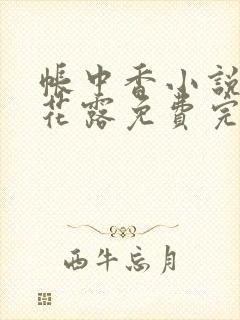 帳中香小說
花露免費完
西牛忘月